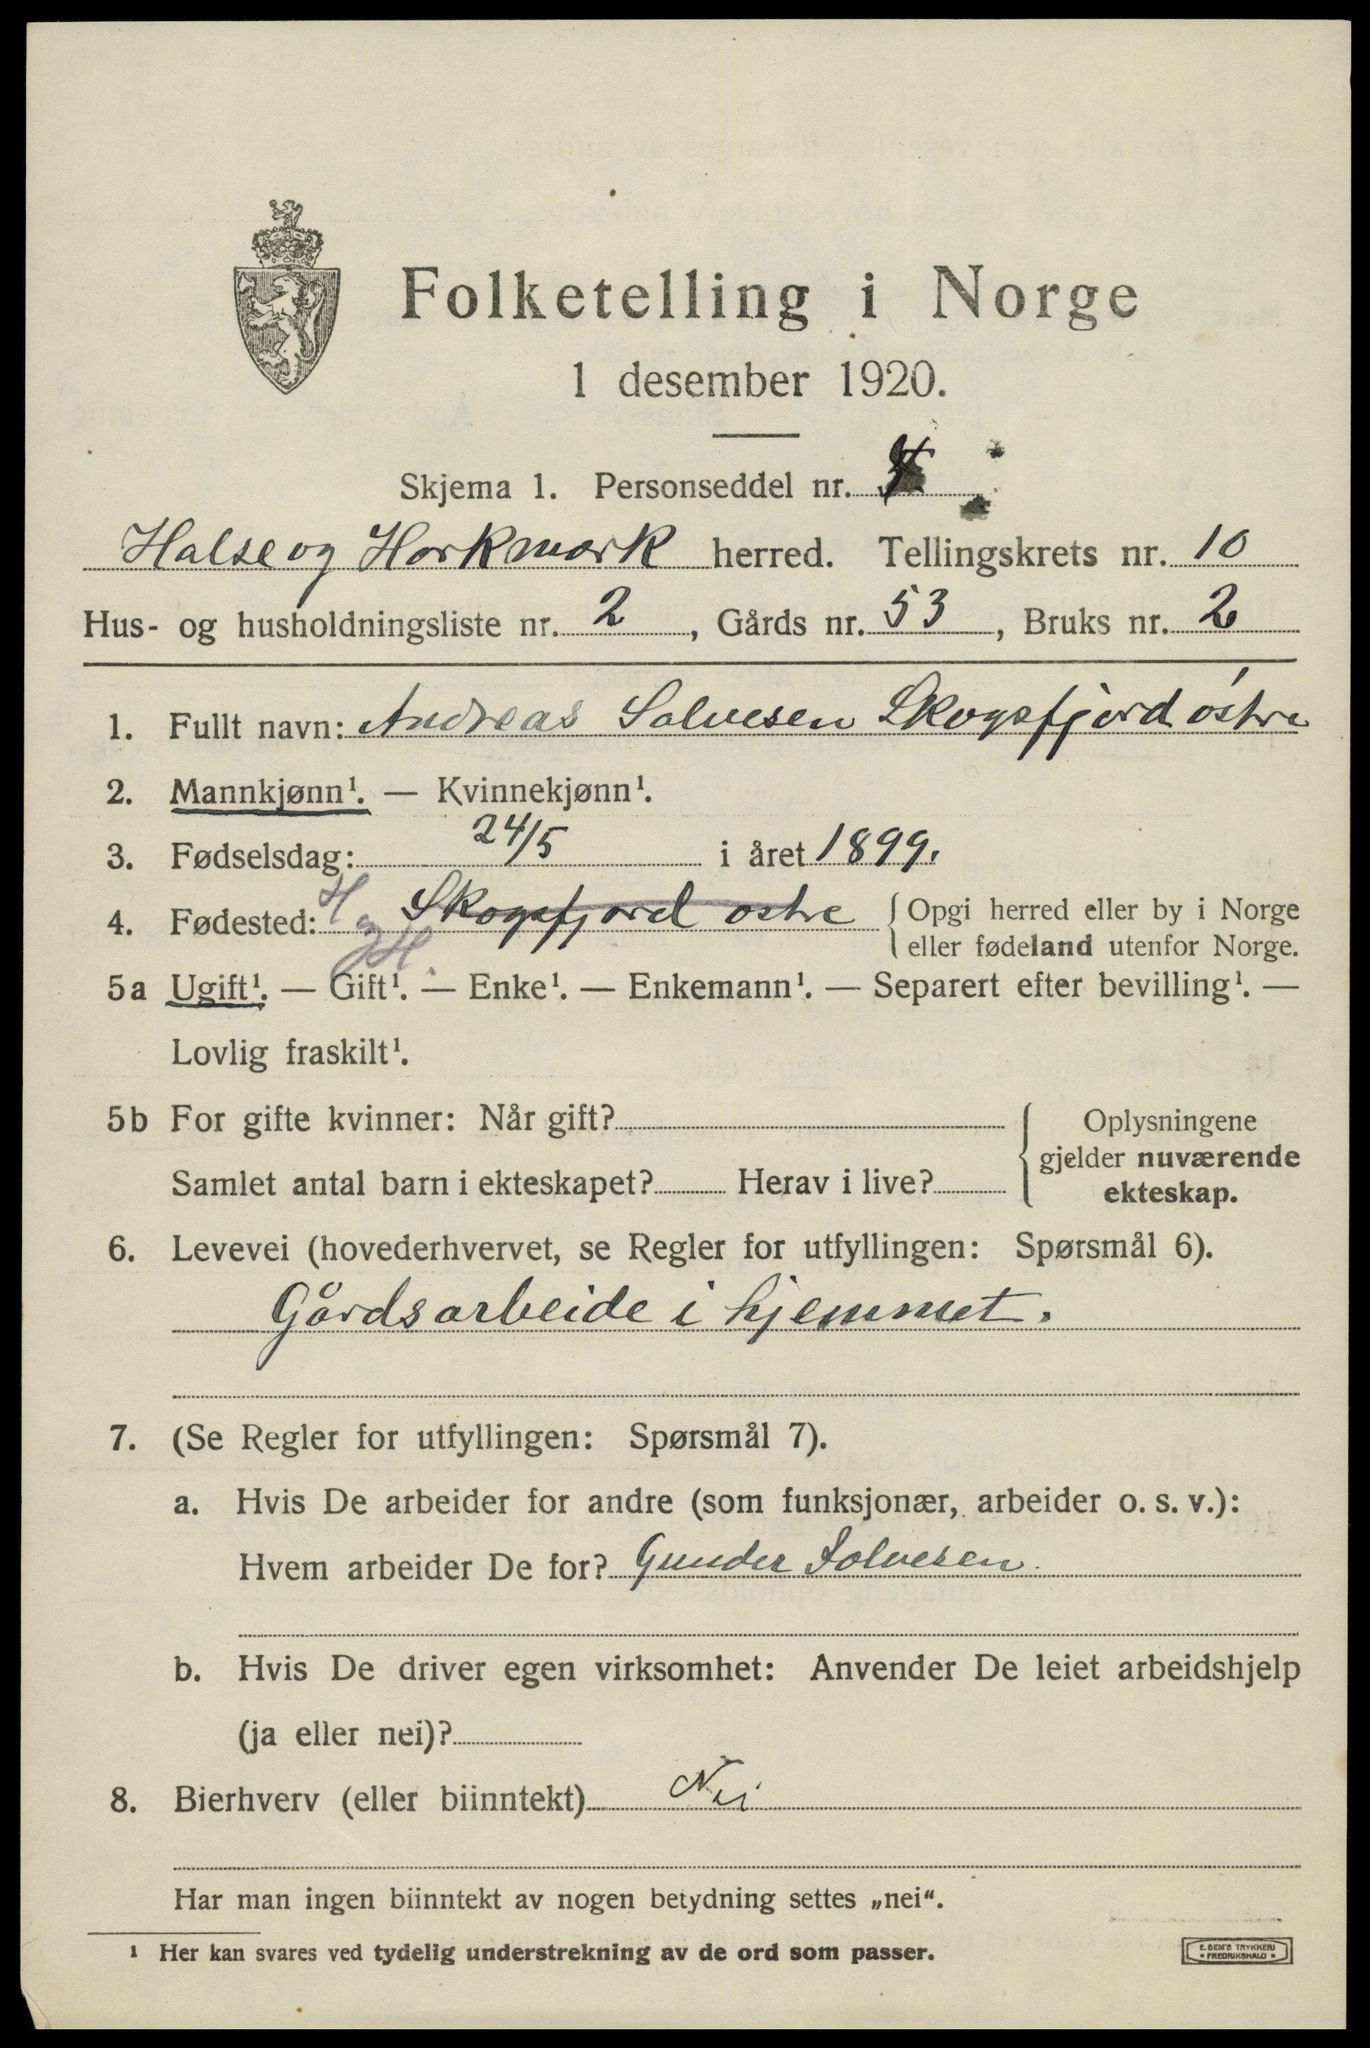 Folketelling i Norge
1 desember 1920.
Skjema 1. Personseddel nr. 4
Halse og Harkmark herred. Tellingskrets nr. 10
Hus- og husholdningsliste nr. 2, Gårds nr. 53, Bruks nr. 2
1. Fullt navn: Andreas Salvesen Skogsfjord østre
2. Mannkjønn¹. — Kvinnekjønn¹.
3. Fødselsdag: 24/5 i året 1899.
4. Fødested: H og H. Skogsfjord østre { Opgi herred eller by i Norge
eller fødeland utenfor Norge.
5a Ugift¹. — Gift¹. — Enke¹. — Enkemann¹. — Separert efter bevilling¹. —
Lovlig fraskilt¹.
5b For gifte kvinner: Når gift? { Oplysningene
gjelder nuværende
Samlet antal barn i ekteskapet? Herav i live? ekteskap.
6. Levevei (hovederhvervet, se Regler for utfyllingen: Spørsmål 6).
Gårdsarbeide i hjemmet.
7. (Se Regler for utfyllingen: Spørsmål 7).
a. Hvis De arbeider for andre (som funksjonær, arbeider o. s. v.):
Hvem arbeider De for? Gunder Salvesen.
b. Hvis De driver egen virksomhet: Anvender De leiet arbeidshjelp
(ja eller nei)?
8. Bierhverv (eller biinntekt) Nei
Har man ingen biinntekt av nogen betydning settes „nei“.
¹ Her kan svares ved tydelig understrekning av de ord som passer.
E. SEM'S TRYKKERI
* FREDRIKSHALD *